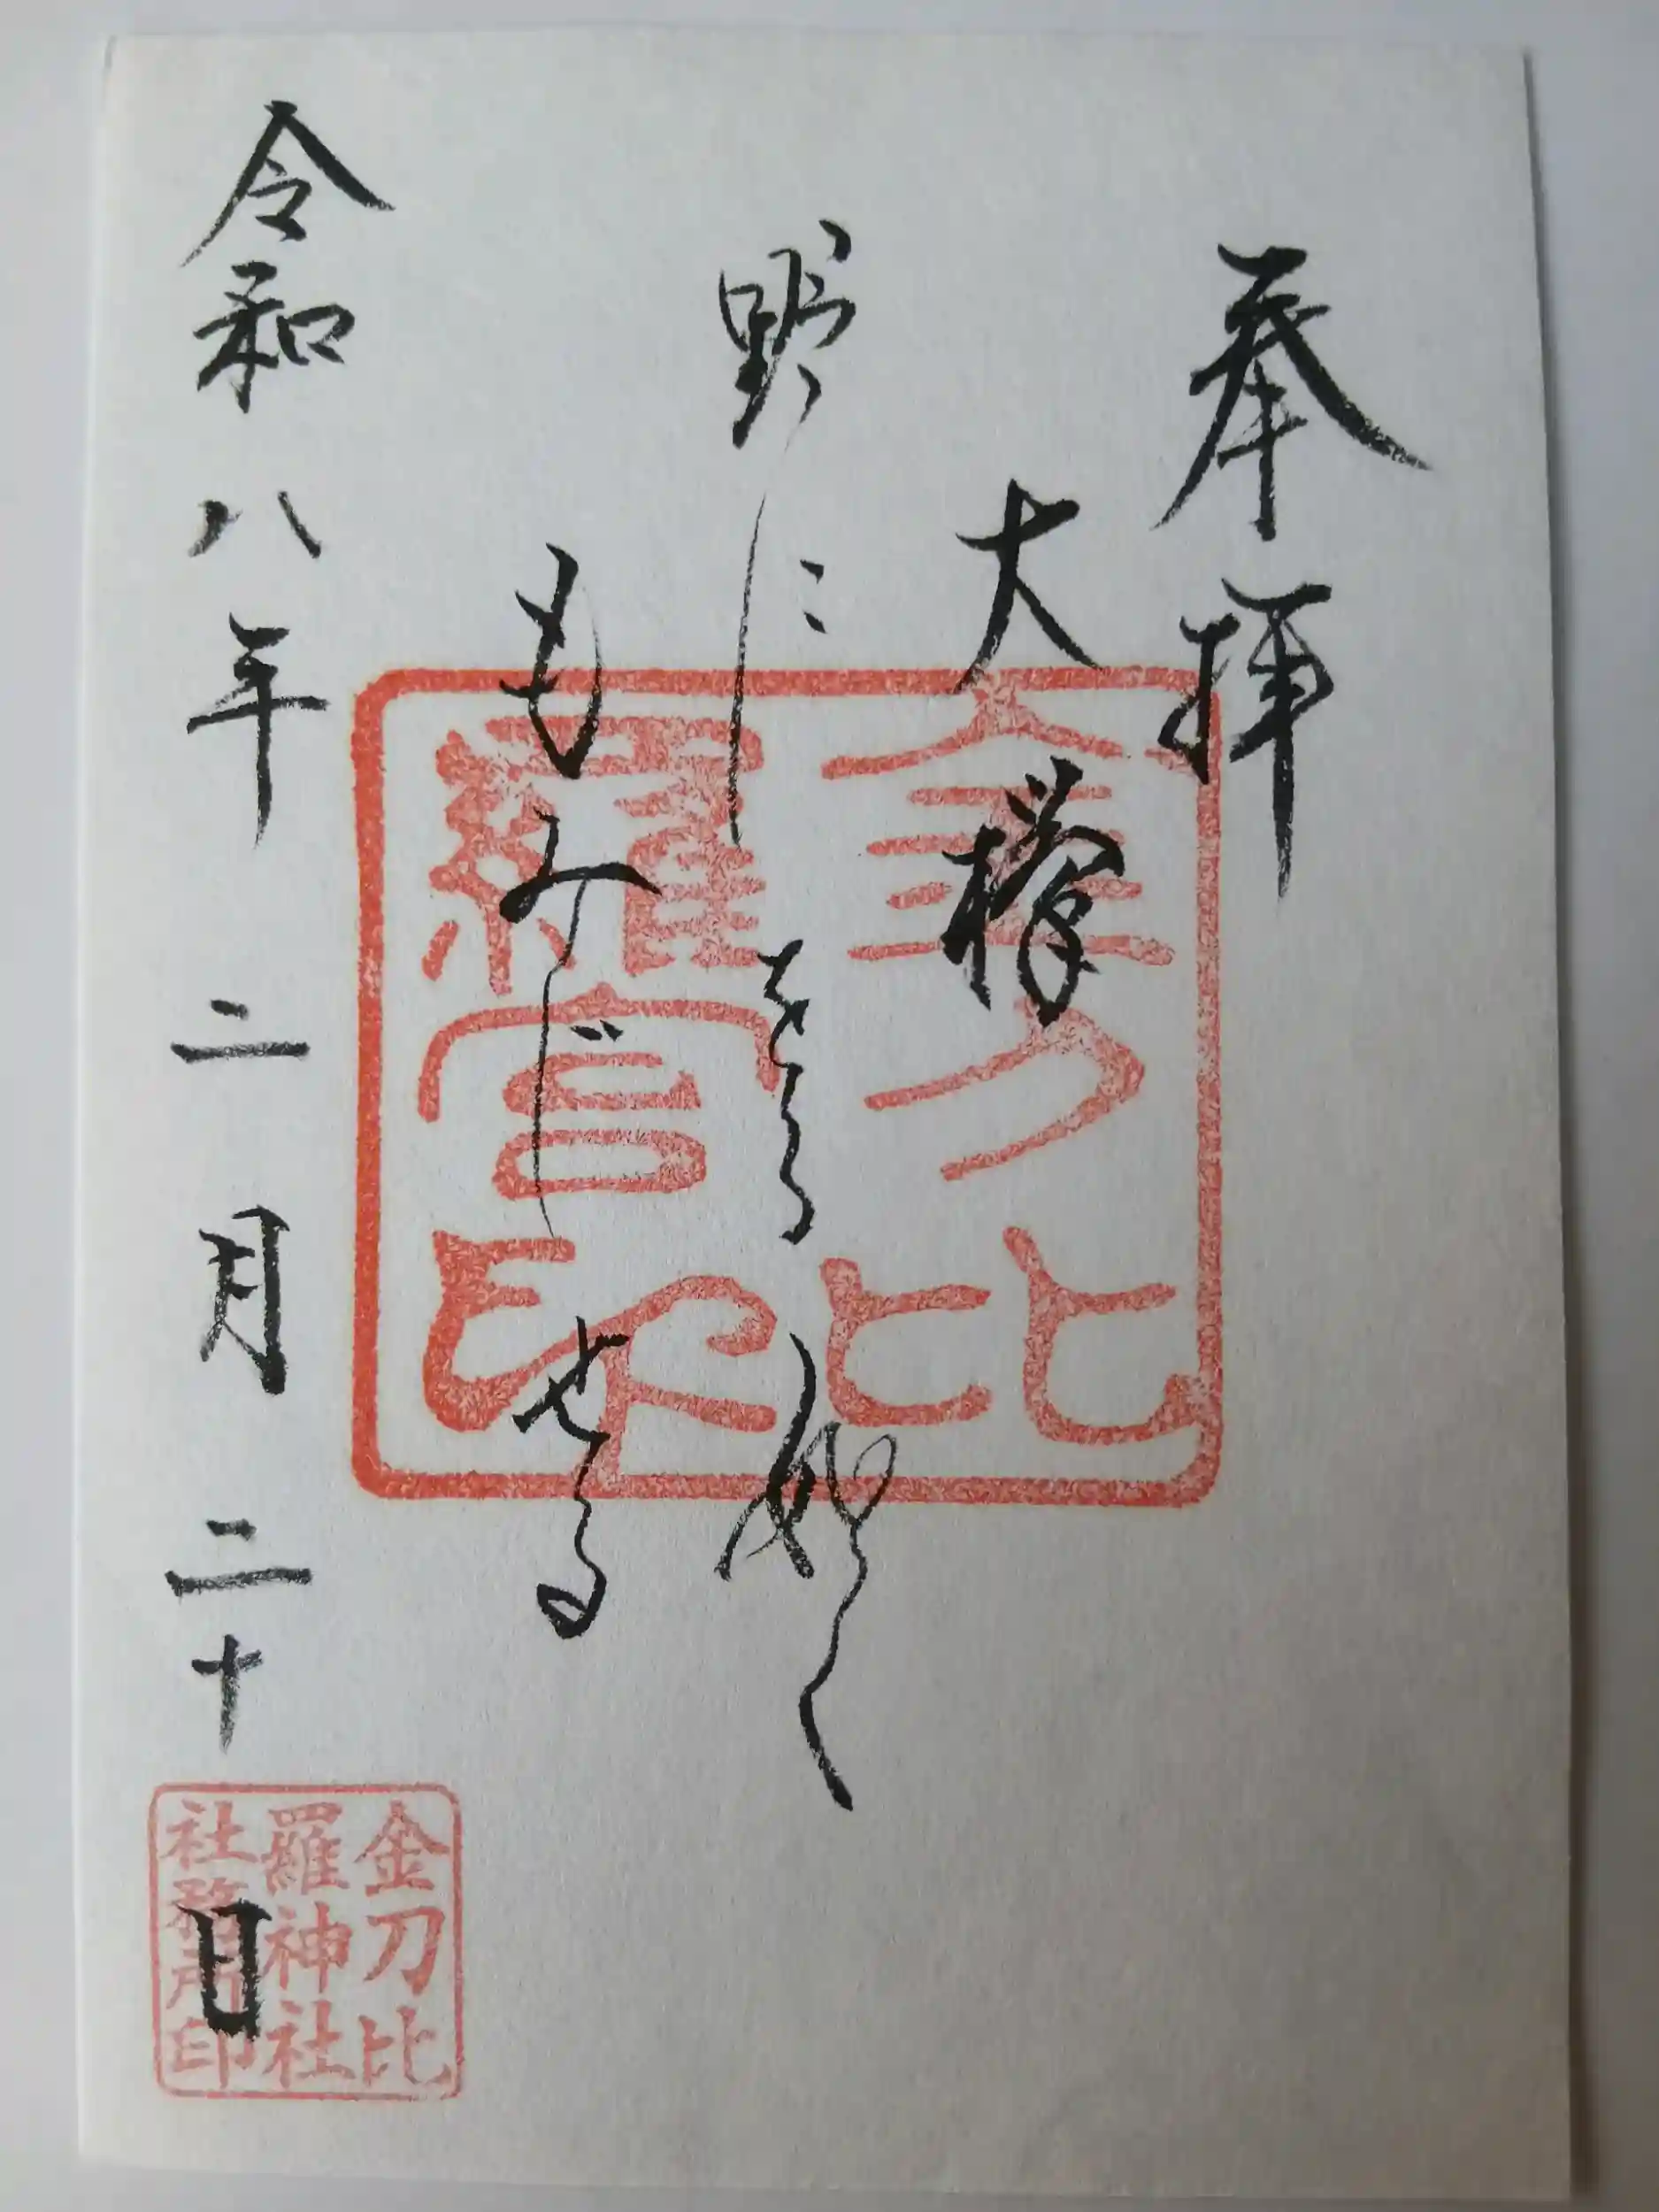 奉拝
大欅
野にをる如く
もみじせる
令和八年二月二十日
金刀比
羅宮印
金刀比
羅神社
社務所印